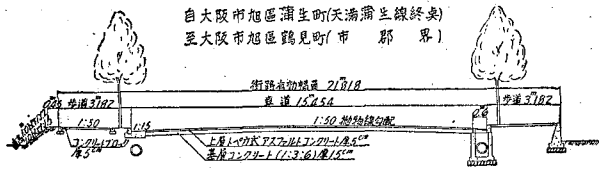 自大阪市旭區蒲生町(天満蒲生線終奌)
至大阪市旭區鶴見町(市郡界)
街路有効幅員 21ᵐ818
0.45 歩道 3ᵐ182
車道 15ᵐ454
0.6 歩道 3ᵐ182
1:30
1:15
1:50 抛物線勾配
コンクリートブロック
厚5cm
上層トペカ式アスファルトコンクリート厚5cm
基層コンクリート(1:3:6)厚15cm